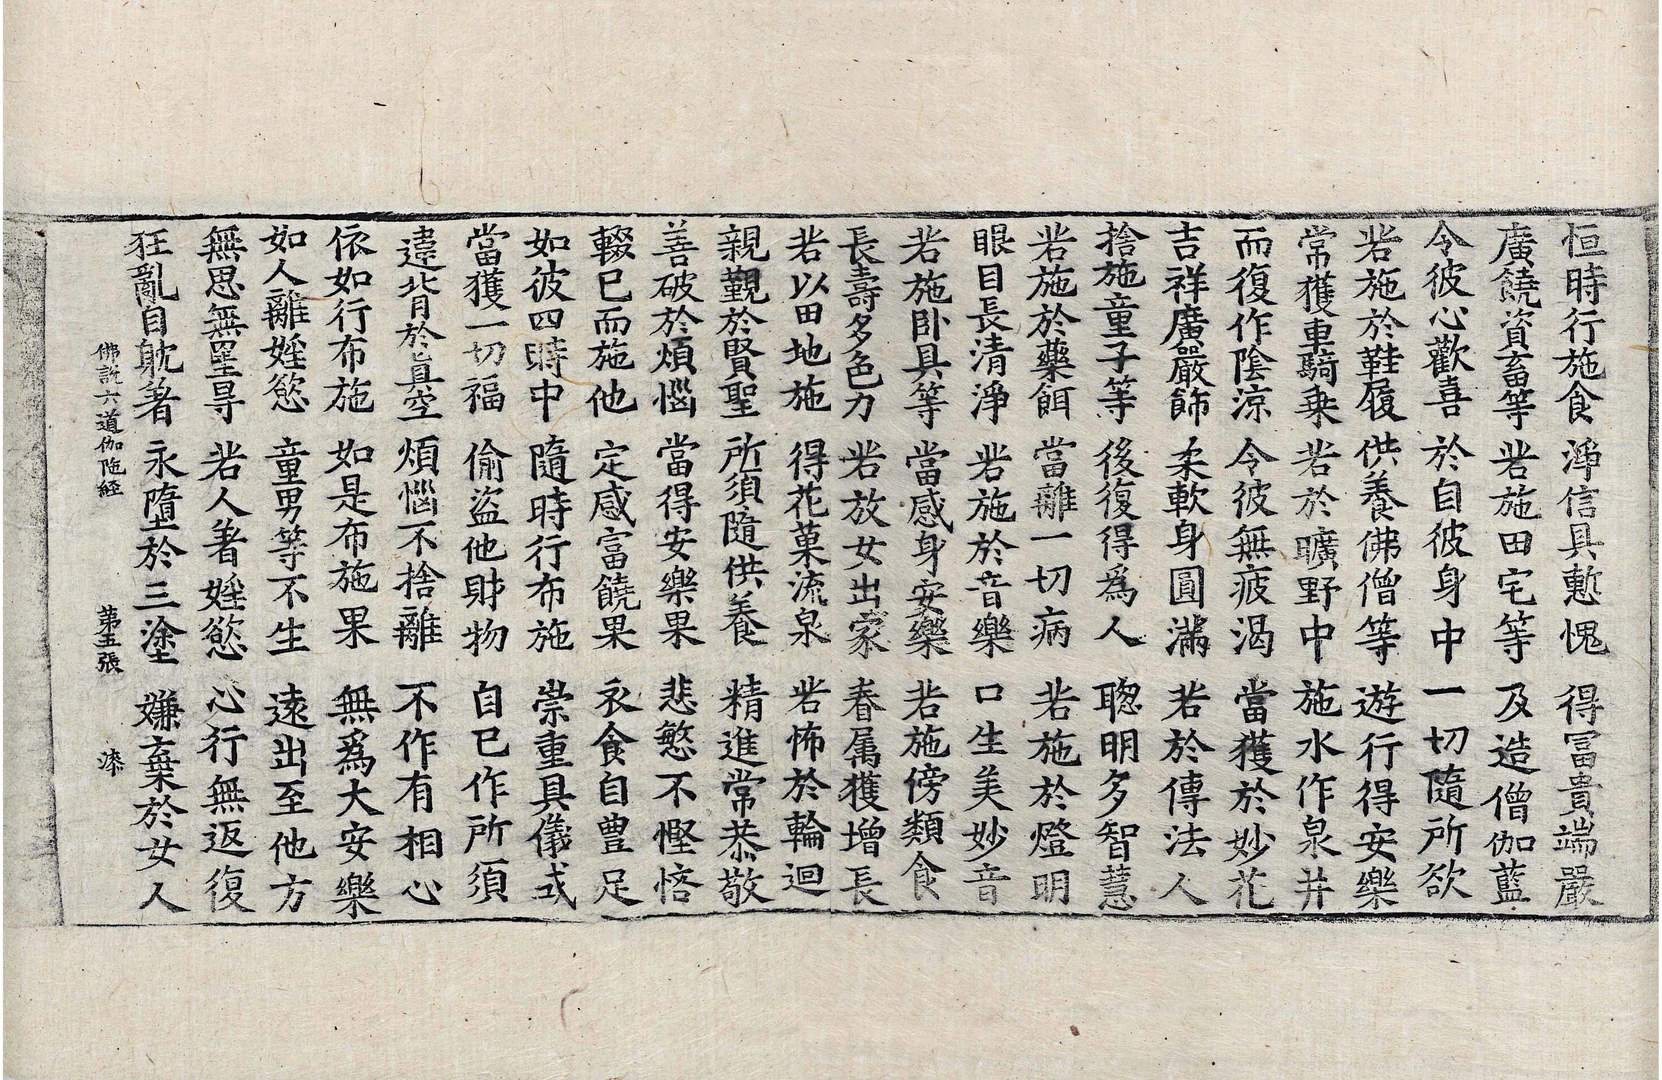 恒時行施食 淨信具慙愧 得冨貴端嚴
廣饒資畜等 若施田宅等 及造僧伽藍
令彼心歡喜 於自彼身中 一切隨所欲
若施於鞋履 供養佛僧等 遊行得安樂
常獲車騎乗 若於曠野中 施水作泉井
而復作陰涼 令彼無疲渴 當獲於妙花
吉祥廣嚴飾 柔軟身圓滿 若於傳法人
捨施童子等 後復得爲人 聦明多智慧
若施於藥餌 當離一切病 若施於燈明
眼目長清淨 若施於音樂 口生美妙音
若施卧具等 當感身安樂 若施傍類食
長壽多色力 若放女出家 眷属獲增長
若以田地施 得花菓流泉 若怖於輪迴
親覲於賢聖 所須隨供養 精進常恭敬
善破於煩惱 當得安樂果 悲愍不慳悋
輟已而施他 定感富饒果 衣食自豊足
如彼四時中 隨時行布施 崇重具儀式
當獲一切福 偷盗他財物 自已作所須
違背於真空 煩惱不捨離 不作有相心
依如行布施 如是布施果 無爲大安樂
如人離婬慾 童男等不生 遠出至他方
無思無罣㝵 若人著婬慾 心行無返復
狂亂自躭著 永墮於三塗 嫌棄於女人
佛説六道伽陁経 苐五張 漆